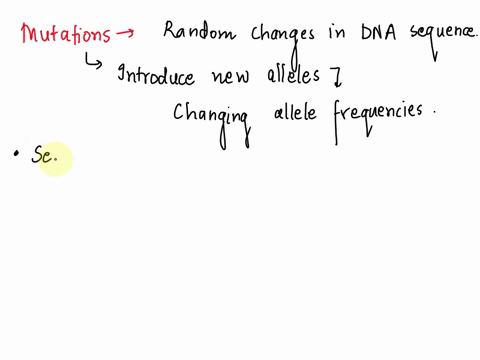 Mutations → Random changes in DNA sequence.
↳ Introduce new alleles ↴
Changing allele frequencies.
• Se.